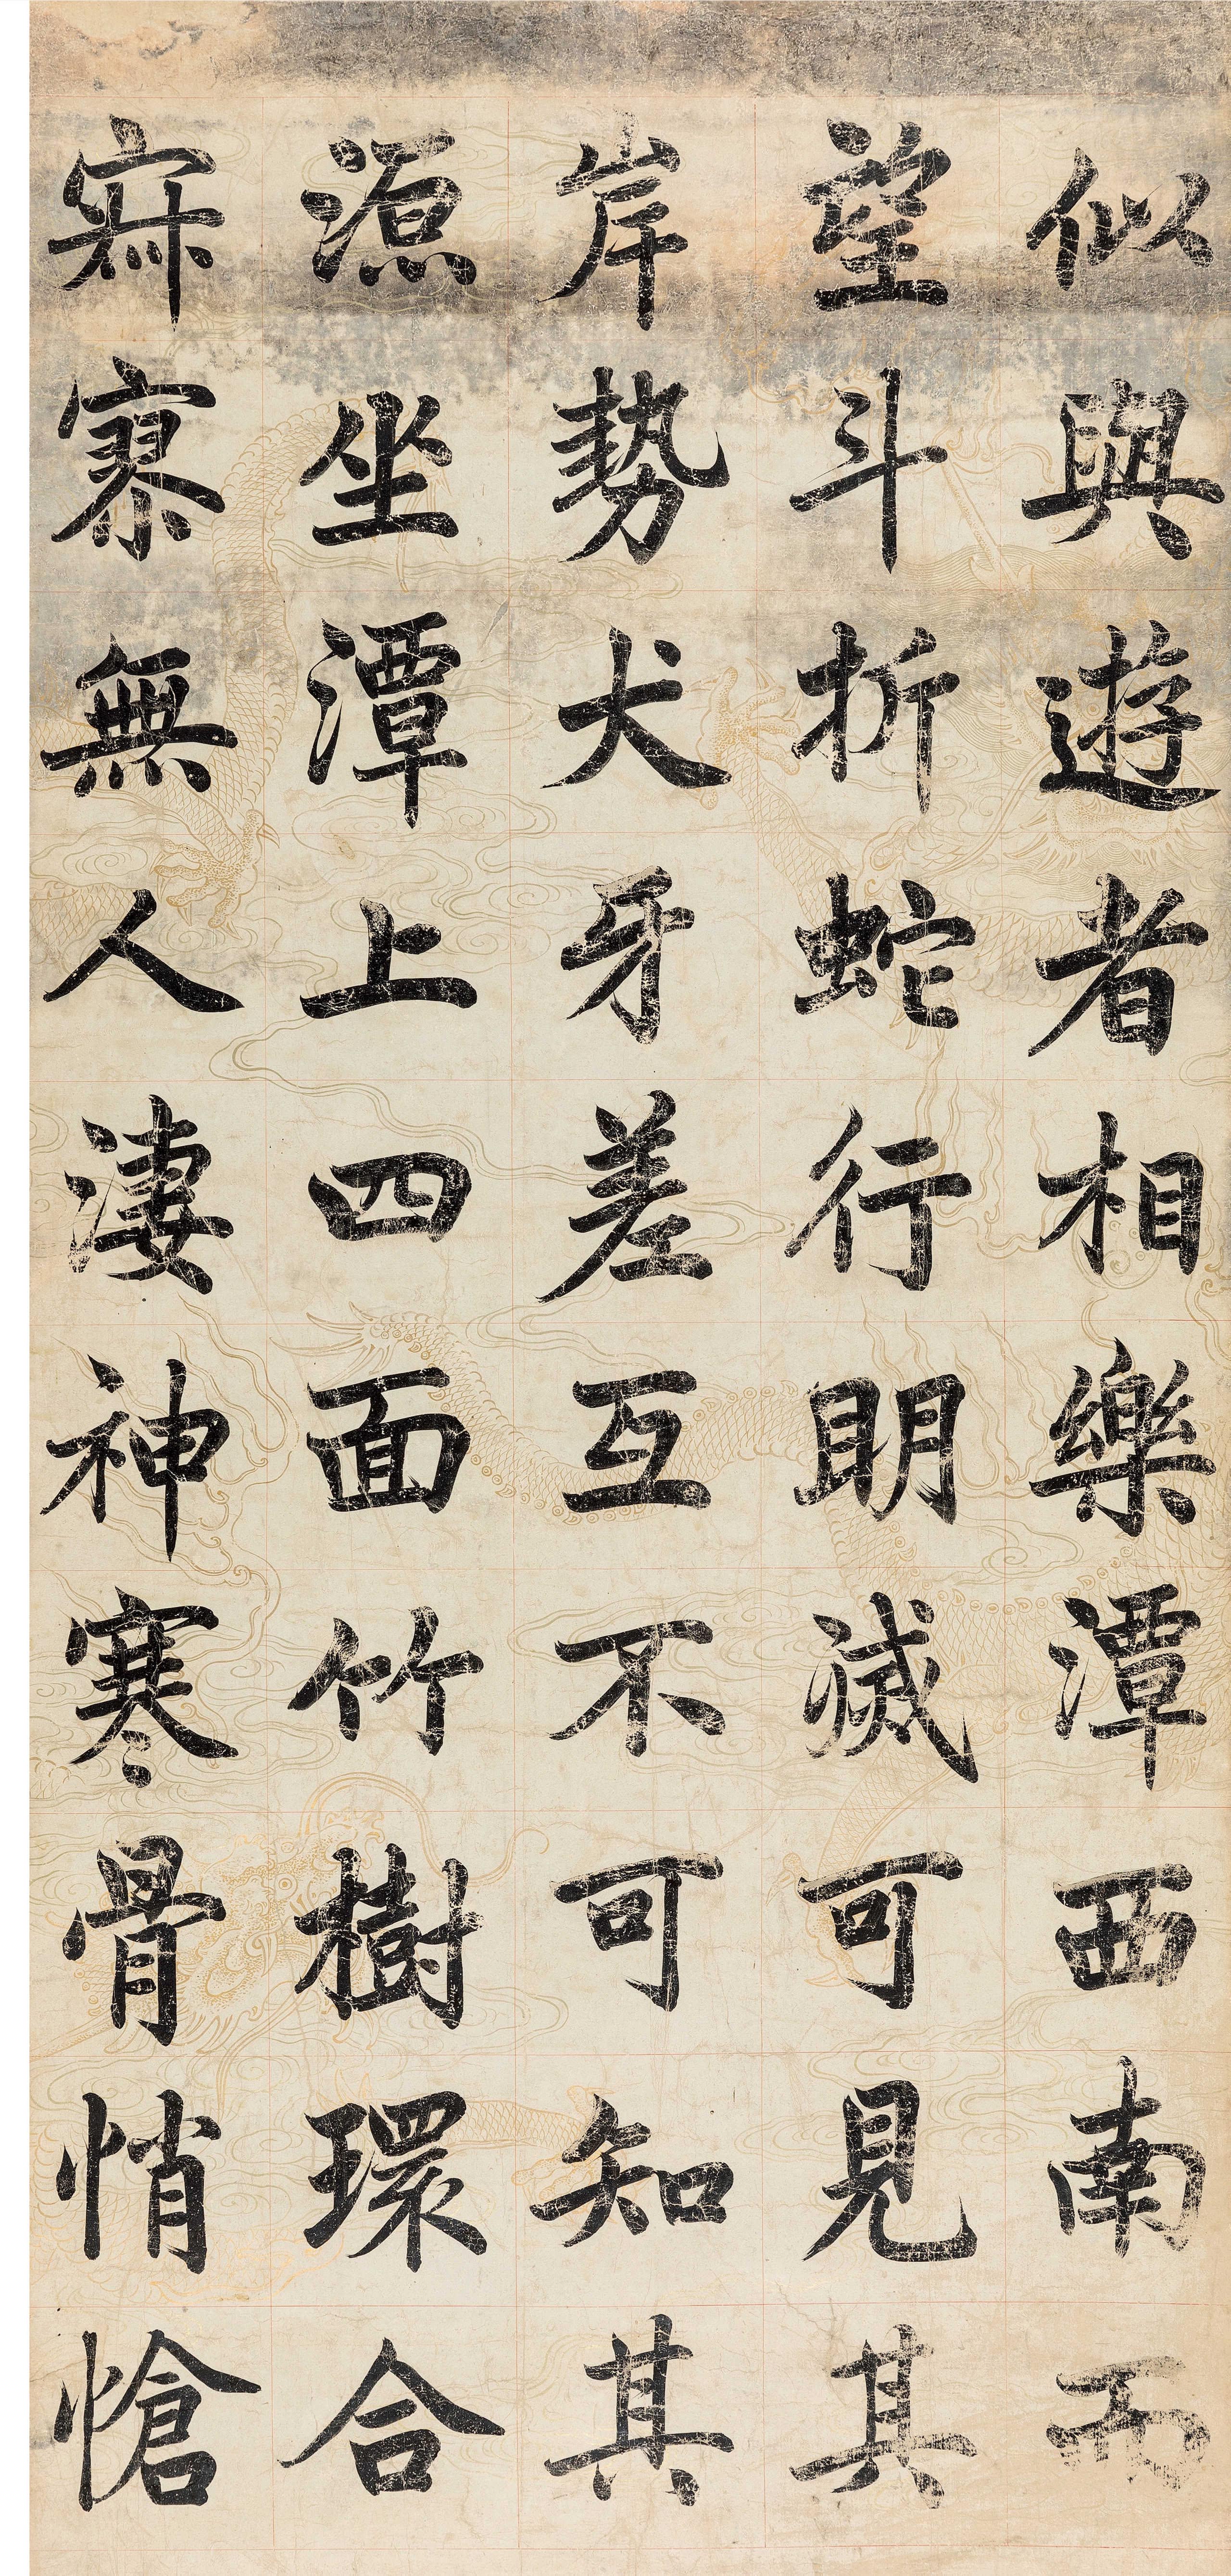 似與遊者相樂潭西南而
望斗折蛇行明滅可見其
岸勢犬牙差互不可知其
源坐潭上四面竹樹環合
寂寥無人淒神寒骨悄愴